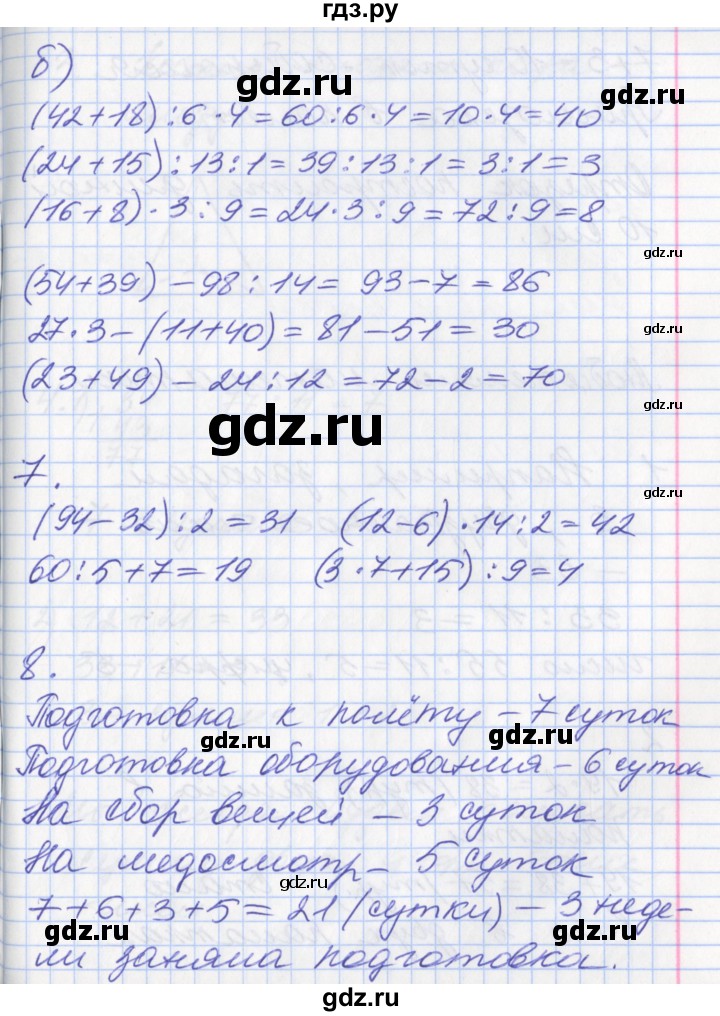 гдз.ру
б)
(42+18):6·4=60:6·4=10·4=40
(24+15):13:1=39:13:1=3:1=3
(16+8)·3:9=24·3:9=72:9=8
(54+39)-98:14= 93-7=86
27·3-(11+40)=81-51=30
(23+49)-24:12=72-2=70
7.
(94-32):2=31 (12-6)·14:2=42
60:5+7=19 (3·7+15):9=4
8.
Подготовка к полёту -7 суток
Подготовка оборудования-6 суток
На сбор вещей - 3 суток
На медосмотр- 5 суток
7+6+3+5=21 (сутки) - 3 неде-
ли заняла подготовка.
gdz.ru
gdz.ru
gdz.ru
gdz.ru
gdz.ru
gdz.ru
gdz.ru
gdz.ru
gdz.ru
gdz.ru
gdz.ru
gdz.ru
gdz.ru
gdz.ru